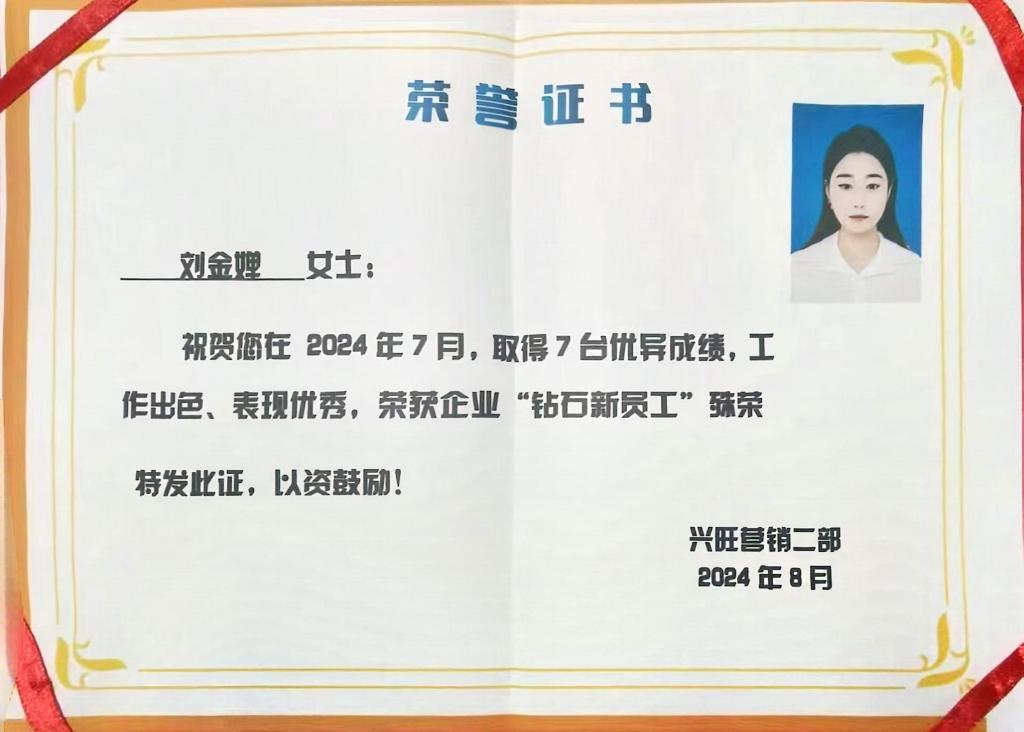 荣誉证书
刘金婵 女士：
祝贺您在 2024 年 7 月，取得 7 台优异成绩，工
作出色、表现优秀，荣获企业“钻石新员工”殊荣
特发此证，以资鼓励！
兴旺营销二部
2024 年 8 月